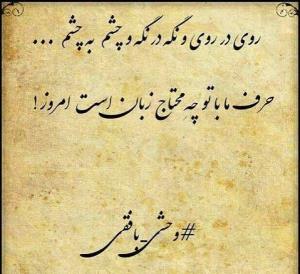 روی در روی و نگه در نگه و چشم به چشم ...
حرف ما با تو چه محتاج زبان است امروز!
#وحشی_بافقی